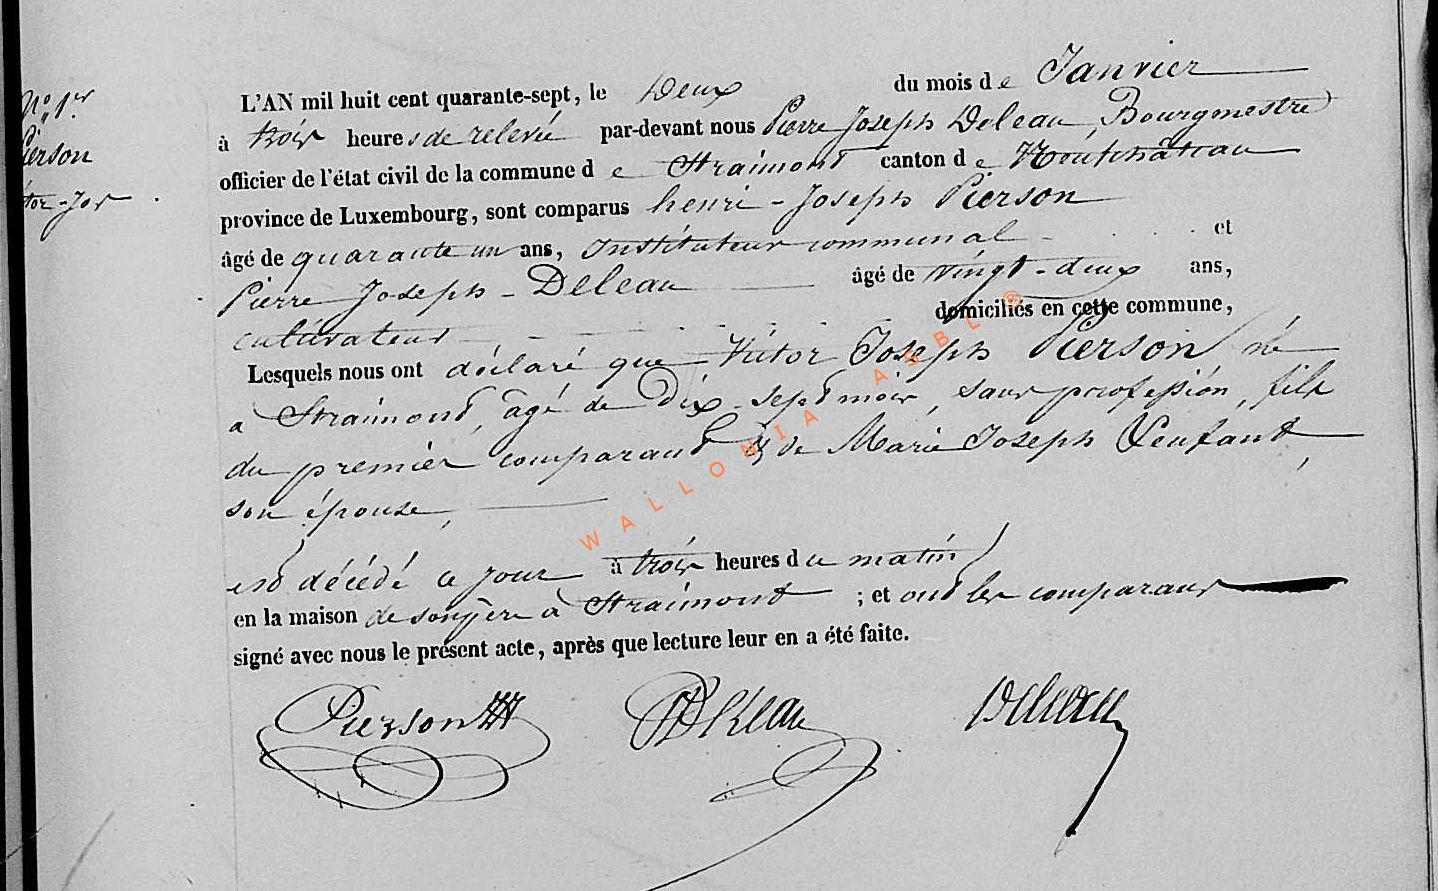 N° 1er
Pierson
Victor-Jos
L'AN mil huit cent quarante-sept, le Deux du mois de Janvier
à trois heures de relevée par-devant nous Pierre Joseph Deleau, Bourgmestre
officier de l'état civil de la commune de Straimont canton de Neufchâteau
province de Luxembourg, sont comparus henri-Joseph Pierson
âgé de quarante un ans, Instituteur communal et
Pierre Joseph Deleau âgé de vingt-deux ans,
cultivateur domiciliés en cette commune,
Lesquels nous ont déclaré que Victor Joseph Pierson né
a Straimont, âgé de Dix-sept mois, sans profession, fils
du premier comparant & de Marie Joseph Lenfant,
son épouse,
est décédé ce jour à trois heures du matin
en la maison de son père à Straimont ; et ont les comparans
signé avec nous le présent acte, après que lecture leur en a été faite.
Pierson PJDeleau Deleau
WALLONIA ASBL ®